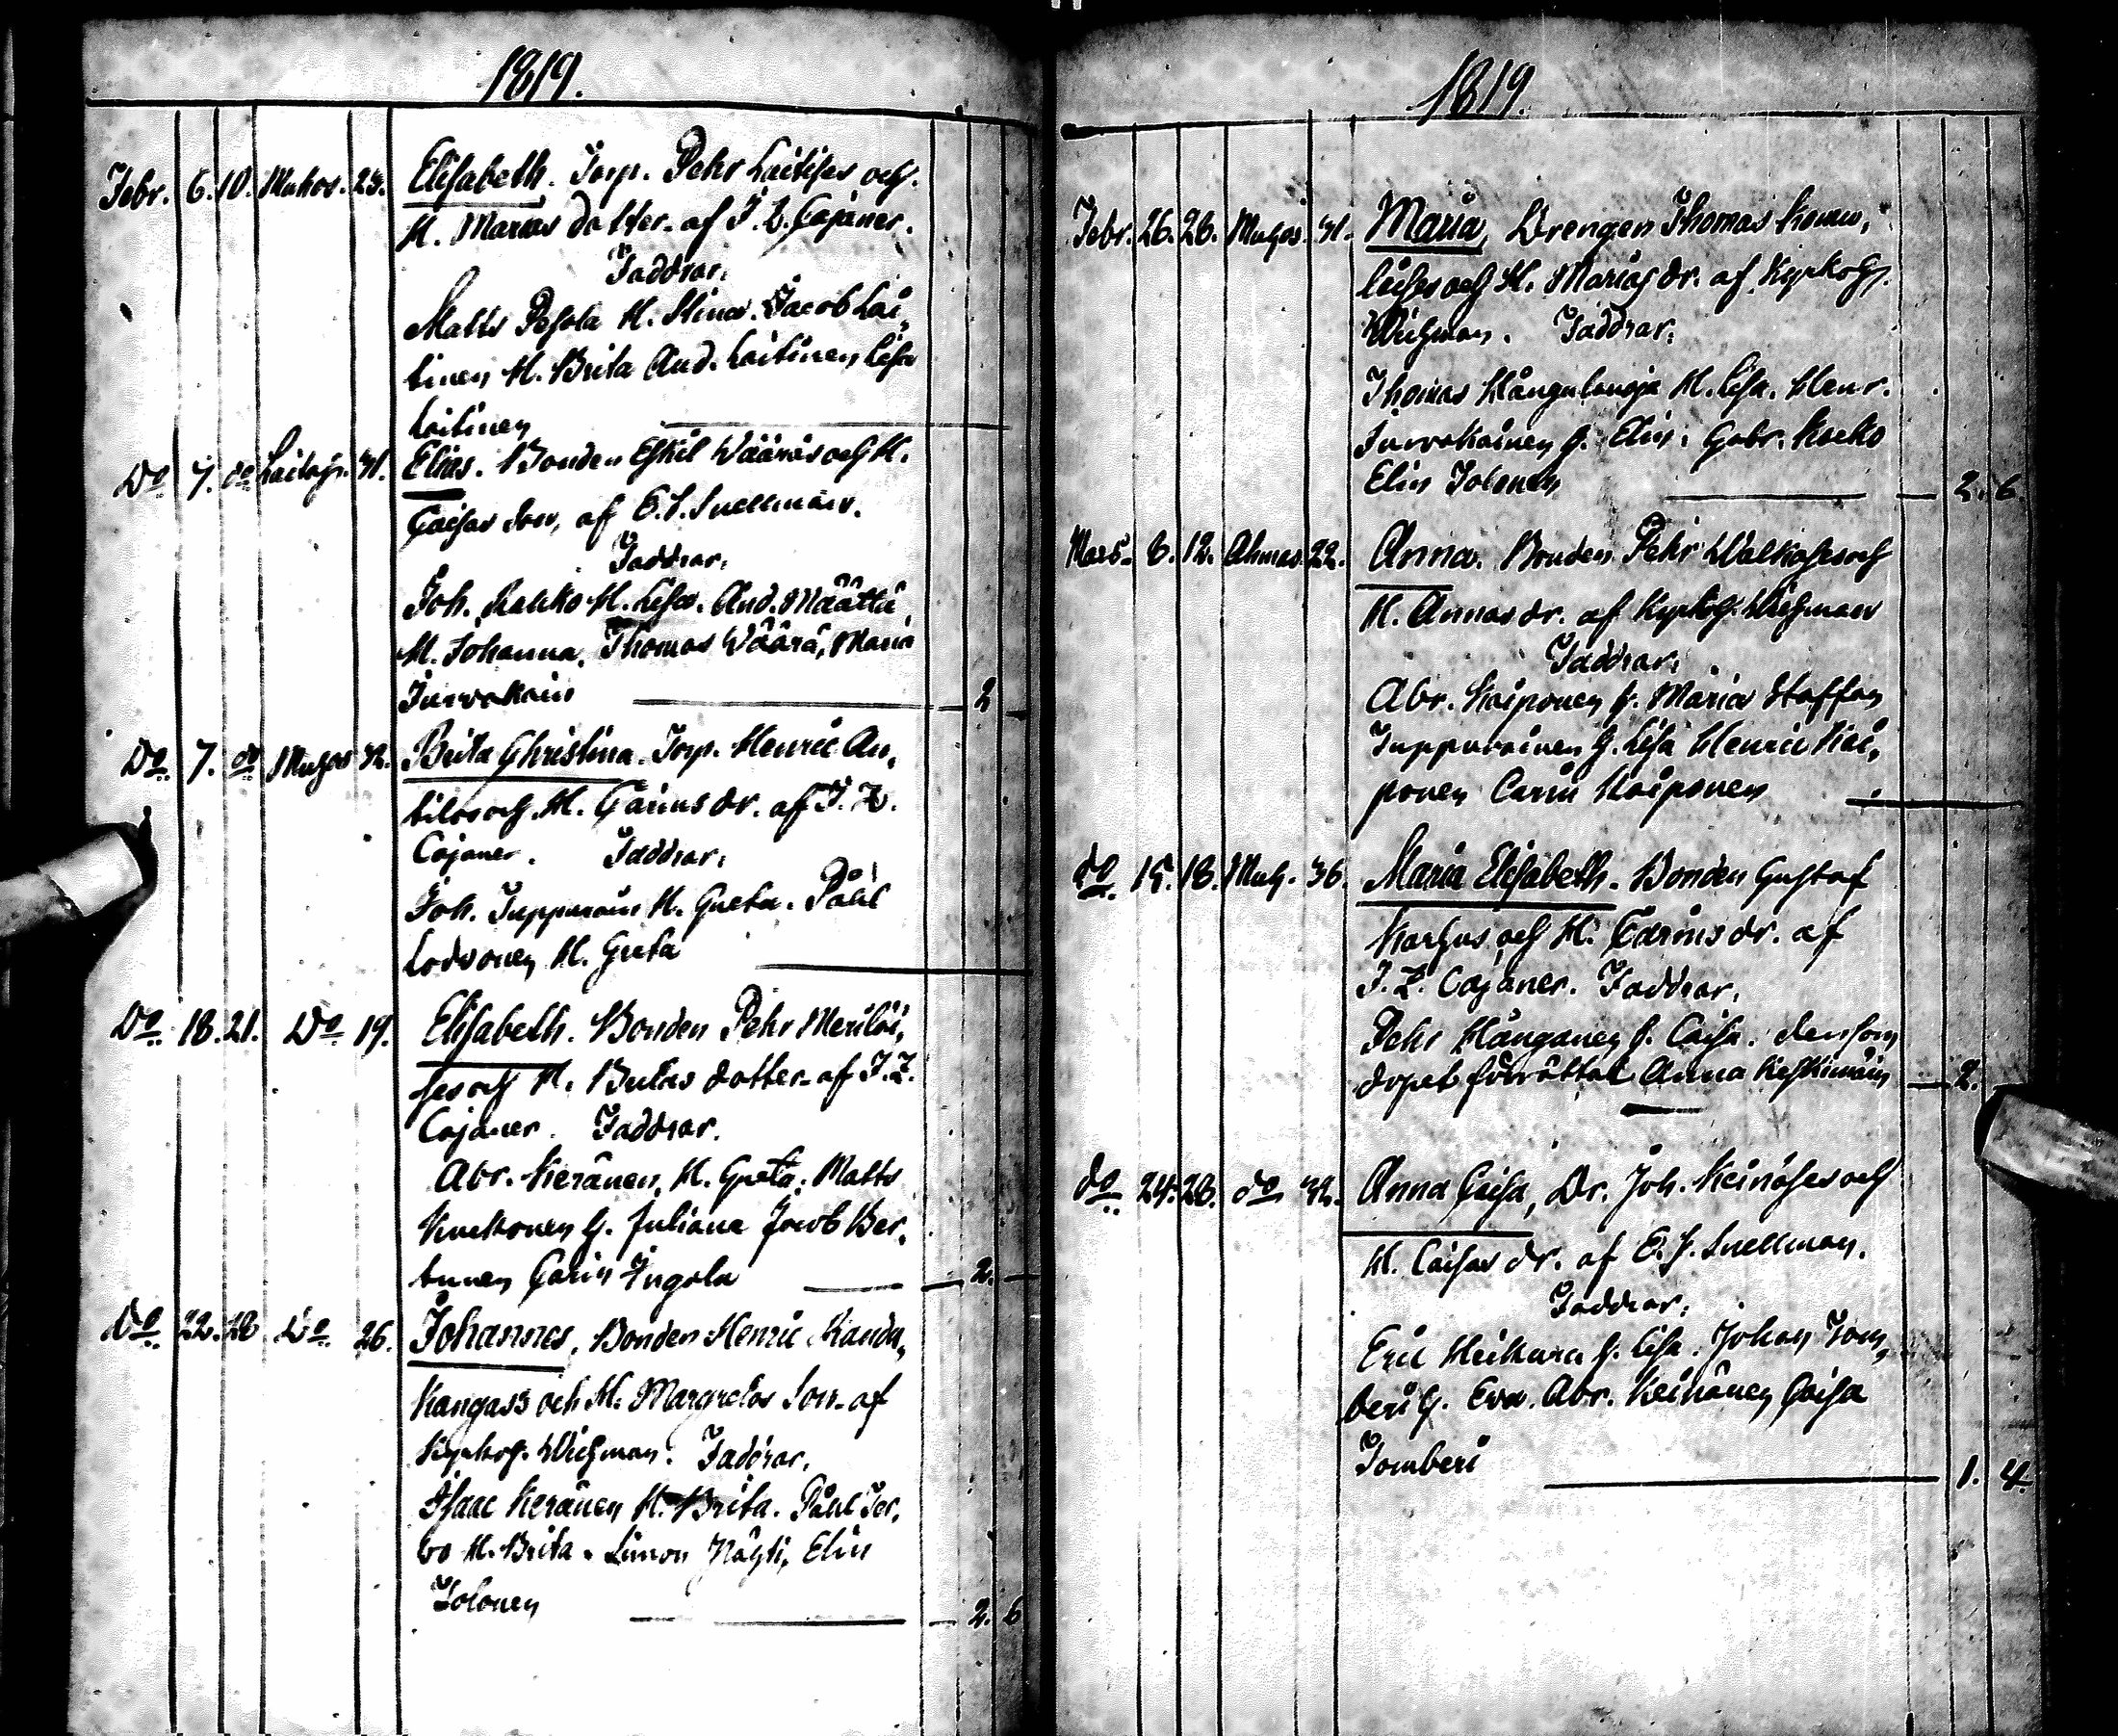 1819.
Febr. 6. 10. Muhos. 23. Elisabeth. Torp. Pehr Laitises och
H. Marias dotter. af J. Z. Cajaner.
Faddrar.
Matts Pesola H. Stina. Jacob Lai,
tinen H. Brita And. Laitinen Lisa
Laitinen
Do 7. do 41. Elias. Bonden Eskil Wääräs och H.
Caisas Son, af E. S. Snellman.
Faddrar.
Joh. H. Lisa. And. Määttä
H. Johanna. Thomas Wäärä, Maria
Turvakain 2
Do. 7. do Muhos 32. Brita Christina. Torp. Henric An,
tilas och H. Carins dr. af J. Z.
Cajaner. Faddrar.
Joh. Tuppurain H. Greta. Påhl
H. Greta
Do. 18. 21. Do 19. Elisabeth. Bonden Pehr Meriläi,
ses och H. Britas dotter. af J. Z.
Cajaner. Faddrar.
Abr. Keränen, H. Greta. Matts
Kuckonen H. Juliana Jacob Ker,
tunen Carin Ingola 2.
Do. 22. 28 Do. 26. Johannes, Bonden Henric Kandu,
Kangass och H. Margretas Son. af
Kyrkoh. Wichman. Faddrar.
Isaac Keränen H. Brita. Påhl Ter,
vo H. Brita. Simon Elin
Tolonen 2. 6
1819.
Febr. 26. 28. Muhos. 41. Maria, Drengen Thomas
och H. Marias dr. af Kyrkoh.
Wichman. Faddrar.
Thomas H. Lisa. Henr.
Turvakainen H. Elin. Gabr. Kocko
Elin Tolonen 2. 6.
Mars. 6. 12. Ahmas. 22. Anna. Bonden Pehr Walkoses och
H. Annas dr. af Kyrkoh. Wichman
Faddrar.
Abr. Kaiponen H. Maria Staffan
Tuppurainen H. Lisa Henric Kai,
ponen Carin Kaiponen
do. 15. 18. Muh. 36. Maria Elisabeth. Bonden Gustaf
Karhus och H. Carins dr. af
J. Z. Cajaner. Faddrar.
Pehr Hånganen H. Caisa. den som
dopet förrättat Anna Keskimäin 2.
do. 24. 28. do 32. Anna Caisa, Dr. Joh. Keinäses och
H. Caisas dr. af E. S. Snellman.
Faddrar.
Eric Heikura H. Lisa. Johan Tom,
beri H. Eva. Abr. Keinänen Caisa
Tomberi 1. 4.